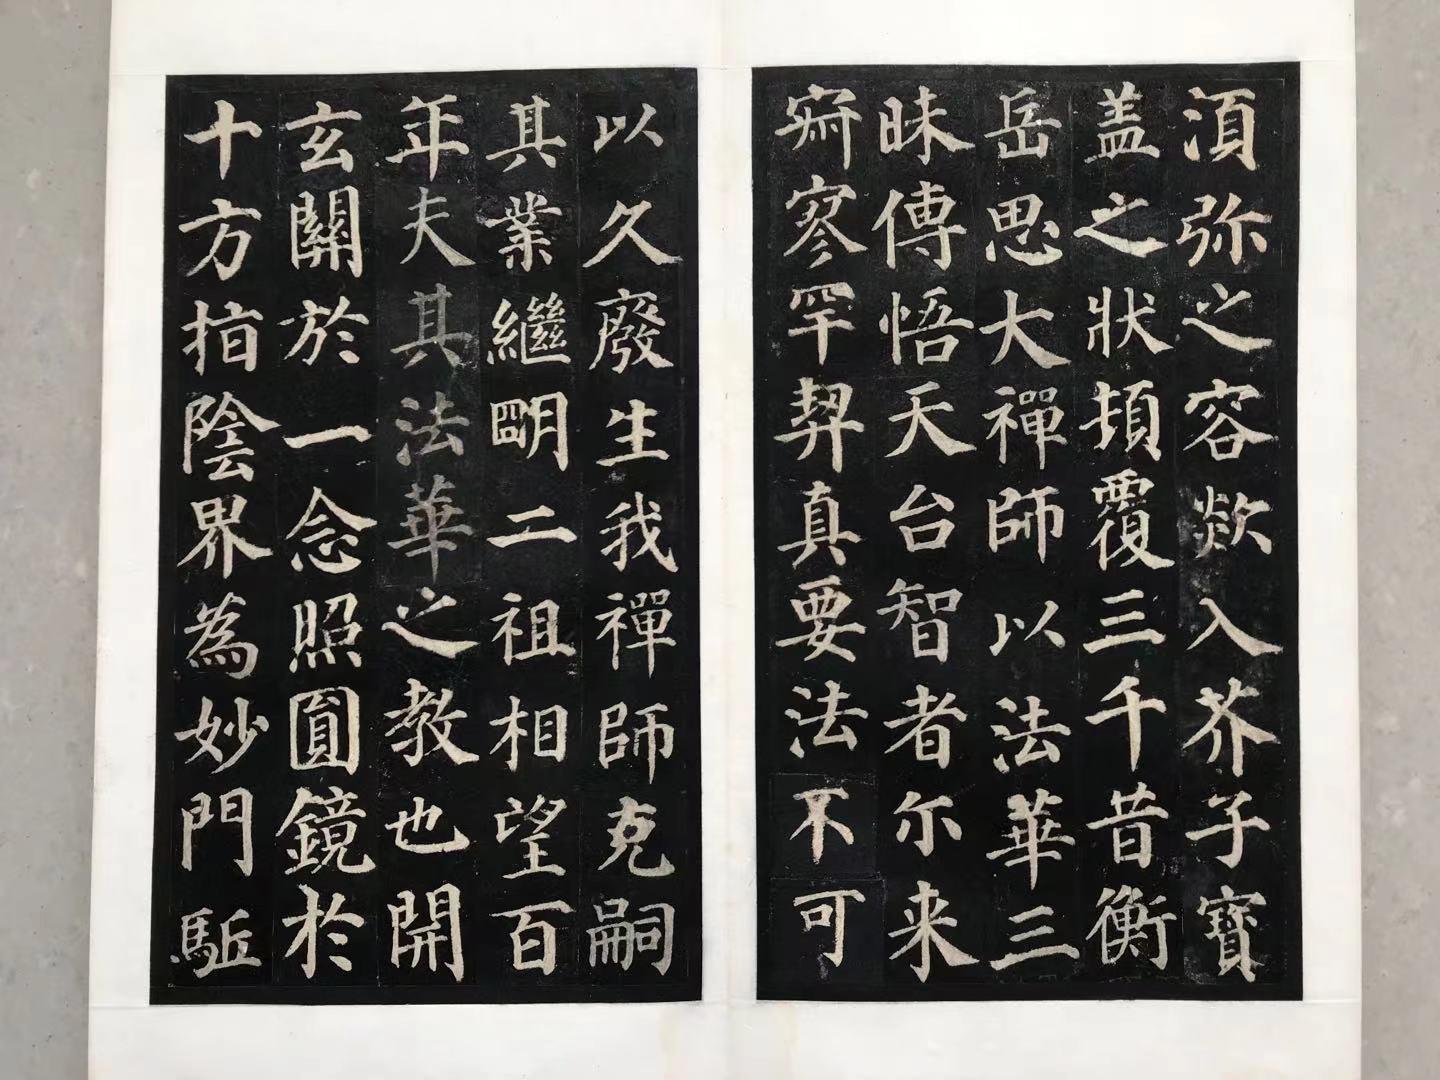 湏弥之容欻入芥子寳
盖之状頓覆三千昔衡
岳思大禪師以法華三
昧傳悟天台智者尓来
寂寥罕契真要法不可
以久廢生我禪師克嗣
其業繼明二祖相望百
年夫其法華之教也開
玄關於一念照圓鏡於
十方指陰界為妙門駈